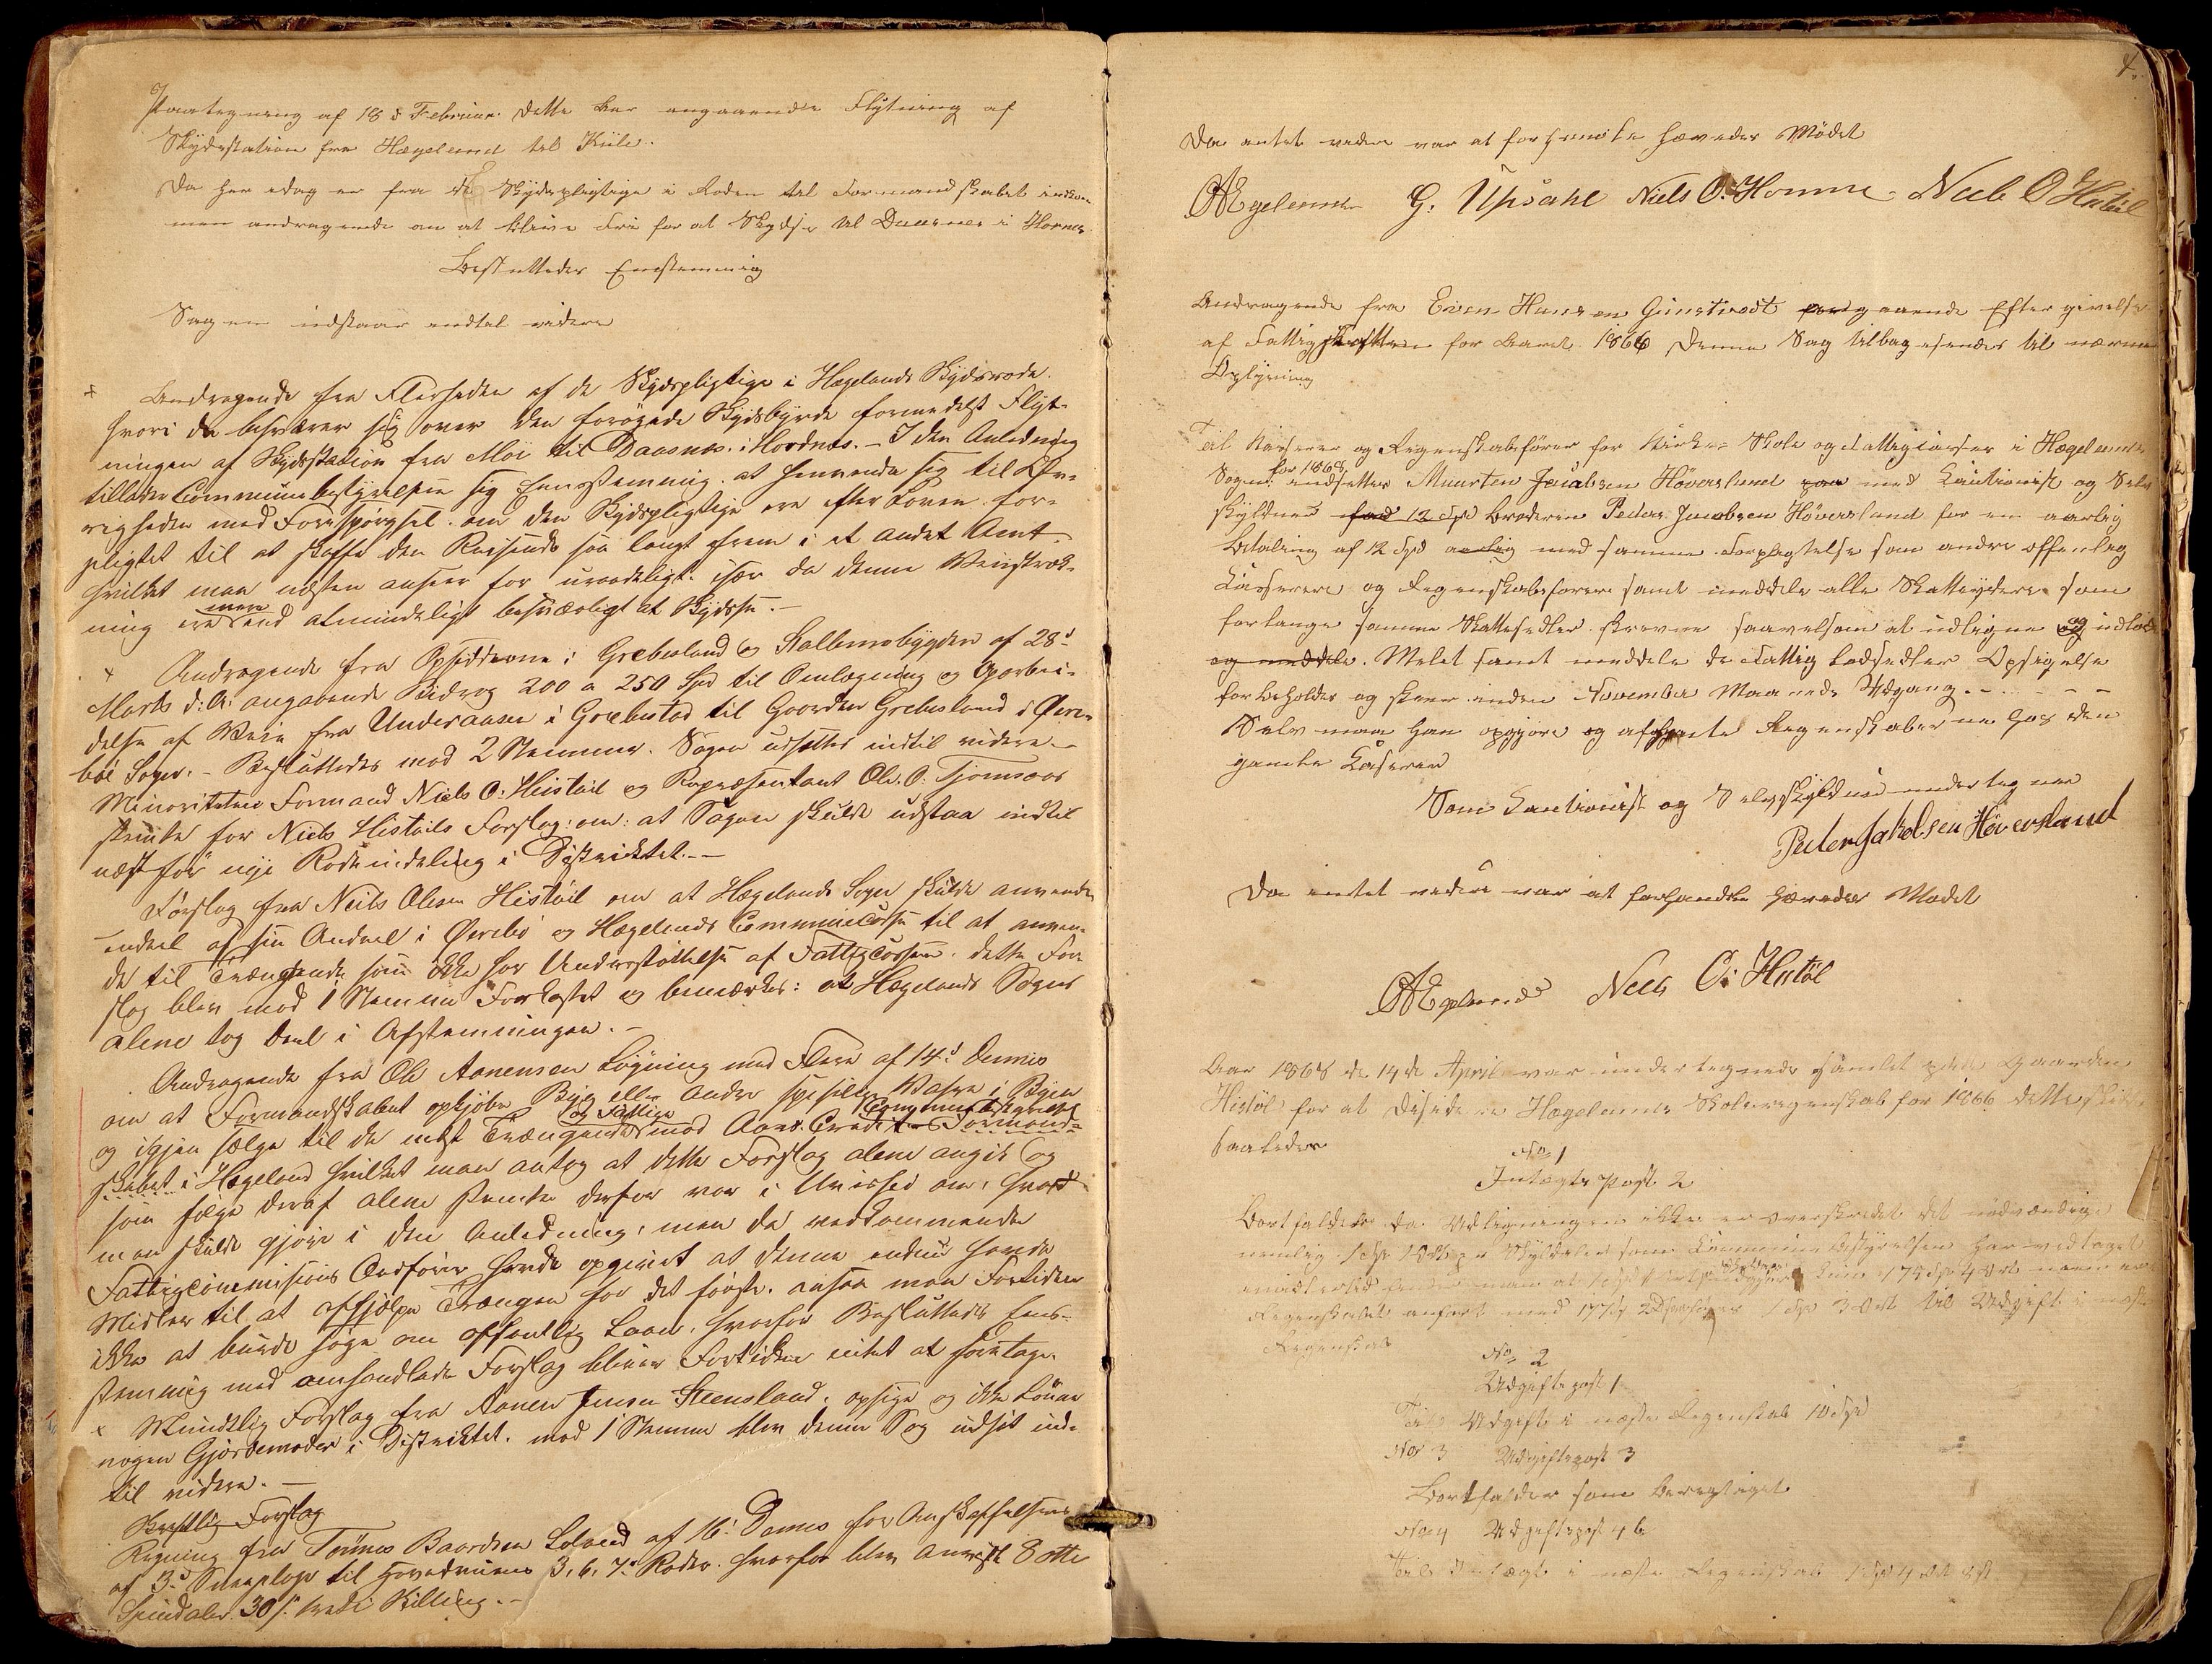 Paategning af 18de Februar dette Aar angaaende Flytning af
Skydsstation fra Hægeland til Kiile.
Da her idag er fra de Skydspligtige i Roden til Formandskabet indkom
men andragende om at blive Fri for at Skydse til Daasnes i Hornes
Besluttedes Enstemmig
Sagen udstaar indtil videre
Andragende fra Flerheden af de Skydspligtige i Hægelands Skydsrode.
hvori de besværer sig over den forøgede Skydsbyrde formedelst Flyt-
ningen af Skydsstation fra Moi til Daasnes i Hordnes. - I den Anledning
tillader Communebestyrelsen sig Eenstemmig at henvende sig til Øv-
righeden med Forespørgsel om den Skydspligtige ere efter Loven for-
pligtet til at skaffe den Reisende saa langt frem i et andet Amt
hvilket man næsten anseer for uraadeligt især da denne Veistræk-
ning ere mere end almindeligt besværligt at Skydse. -
Andragende fra Opsidderne i Grebesland og Stallemobygden af 28d
Marts d: A: angaaende Bidrag 200 a 250 Spd til Omlægning og Oparbei-
delse af Veie fra Underaasen i Grebestad til Gaarden Grebesland i Øvre-
bø Sogn. - Besluttedes mod 2 Stemmer. Sagen udsættes indtil videre -
Minoriteten Formand Niels O: Histøil og Repræsentant Ole O. Tjomsaas
stemte for Niels Histøils Forslag: om: at Sagen skulde udstaa indtil
næst før nye Rodeindeling i Distriktet. -
Forslag fra Neils Olsen Histøil om at Hægelands Sogn skulde anvende
endeel af sin Andeel i Øvrebø og Hægelands Communecasse til at anven-
de til Trængende som ikke har Understøttelse af Fattigcassen. dette For
slag blev mod 1 Stemme Forkastet og bemærkes: at Hægelands Sogn
alene tog Deel i Afstemningen. -
Andragende fra Ole Aanensen Løgning med Flere af 14d Dennes
om at Formandskabet opkjøber Byg eller andre spiselige Vahre i Byen
og igjen sælge til de mest Trængende og Fattige mod Aars Credit Communebestyrelsen Formand-
skabet i Hægeland hvilket man antog at dette Forslag alene angik og
som følge deraf alene stemte derfor var i Uvished om, hvad
man skulde gjøre i den Anledning, men da vedkommende
Fattigcommisions Ordfører havde opgivet at denne endnu havde
Midler til at afhjælpe Trangen for det første. ansaa man Fortiden
ikke at burde søge om offentlig Laan, hvorfor Besluttedes Eens-
stemmig med omhandlede Forslag bliver Fortiden intet at foretage.
Mundtlig Forslag fra Aanen Jensen Steensland, opsige og ikke lønne
nogen Gjordemoder i Distriktet. mod 1 Stemme blev denne Sag udsat ind-
til videre. -
Skriftlig Forslag
Regning fra Tønnes Baardsen Loland af 16d Dennes for Anskaffelsen
af 3d Sneeploge til Hovedveiens 3, 6, 7d Roder. hvorfor blev Anvist 8 otte
Speciedaler 30 s. tredi Skilling. -
4.
Da intet videre var at forhandle hævedes Mødet
G. Upsahl Niels O. Homme Niels O Histøil
Andragende fra Even Hansen Gunstvedt angaaende Eftergivelse
af Fattigskatten for Aaret 1866 Denne Sag tilbagesendes til nærmere
Oplysning
Til Kasserer og Regenskabsfører for Kirke- Skole og Fattigcasser i Hægelands
Sogn for 1868 indsattes Maarten Jacobsen Høversland med Kautionist og Selv
skyldner for 12 Spd Broderen Peder Jacobsen Høversland for en aarlig
Betaling af 12 Spd aarlig med samme Forplegtelse som andre offentlig
Casserere og Regenskabsførere samt meddele alle Skatteydere som
forlange samme Skattesedler skrevne saavelsom at udligne og udlod
og meddele. Melet samt meddele de Fattig Lodsedler Opsigelse
forbeholdes og skeer inden November Maaneds Udgang - - - -
Selv maa han opgjøre og afhente Regenskaberne hos den
gamle Kaserer
Som Cautionist og Selvskyldner undertegner
Peder Jakobsen Høversland
Da intet videre var at forhandle hævedes Mødet
Niels O: Histøl
Aar 1868 de 14de April var undertegnede samlet paa Gaarden
Histøl for at Desidere Hægelands Skoleregenskab for 1866 dette skede
saaledes
No 1
Intægts Post 2
Bortfalder da Udligningen ikke er overskredet det nødvændige
nemlig 1 Spd som Communebestyrelsen har vedtaget
Regenskabet anført med 1 Spd 3 Ort til Udgift i næste
Regenskab
No 2
Udgifts post 1
Til Udgift i næste Regenskab 10 Spd
No 3 Udgiftspost 3
Bortfalder som berigtiget
No 4 Udgiftspost 46
Til Intægt i næste Regenskab 1 Spd 4 Ort